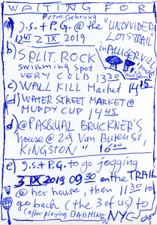 WAITING FOR
Peton Gehrung
a) J.S & P.G. @ the "UNDIVIDED
LOTS TRAIL"
12 45 2 IX 2019
b) SPLIT ROCK
swimming spot
VERY COLD 13 20
c) WALL KILL Market 14 15
d) WATER STREET MARKET @
MUDDY CUP 14 45
d) @ PASQUAL BRUCKNER'S
house @ 29 Van Buren St,
KINGSTON" 16 00
e) J.S & P.G. to go jogging
3 IX 2019 09 30 on the TRAIL
@ her house, then 11 30 to
go back (the 3 of us) to
(after playing BADMIN NYC